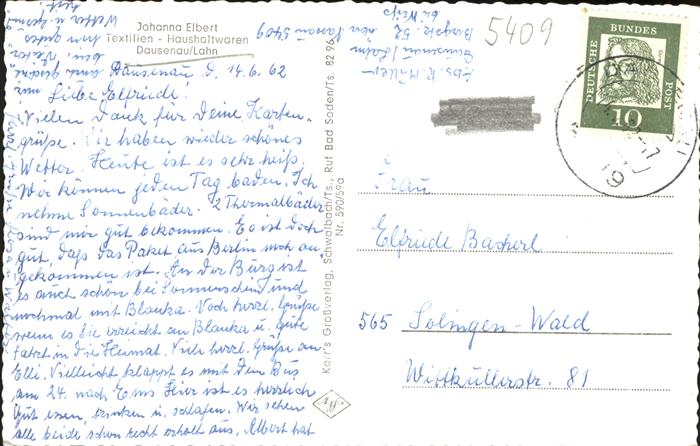 Johanna Elbert
Textilien - Haushaltwaren
Dausenau/Lahn
Dausenau, d. 14.6.62
Liebe Elfriede!
Vielen Dank für Deine Karten-
grüße. Wir haben wieder schönes
Wetter. Heute ist es sehr heiß.
Wir können jeden Tag baden. Ich
nehme Sonnenbäder. 2 Thermalbäder
sind mir gut bekommen. Es ist doch
gut, daß das Paket aus Berlin noch an-
gekommen ist. An der Burg ist
es auch schön bei Sonnenschein und
nochmal mit Blanka. Noch herzl. Grüße
wenn es Sie erreicht an Blanka u. gute
Fahrt in die Heimat. Viele herzl. Grüße an
Elli. Vielleicht klappt es mit dem Bus
am 24. nach Ems Hier ist es herrlich
Gut essen, trinken u. schlafen. Wir sehen
alle beide schon recht erholt aus. Albert hat
Korr's Großverlag, Schwalbach/Ts., Ruf Bad Soden/Ts. 82 96
Nr. 590/59a
Abs. R. Müller
Dausenau/Lahn
über Nassau 5409
5409
DEUTSCHE BUNDESPOST
10
Frau
Elfriede Bacherl
565 Solingen-Wald
Wittkullerstr. 81